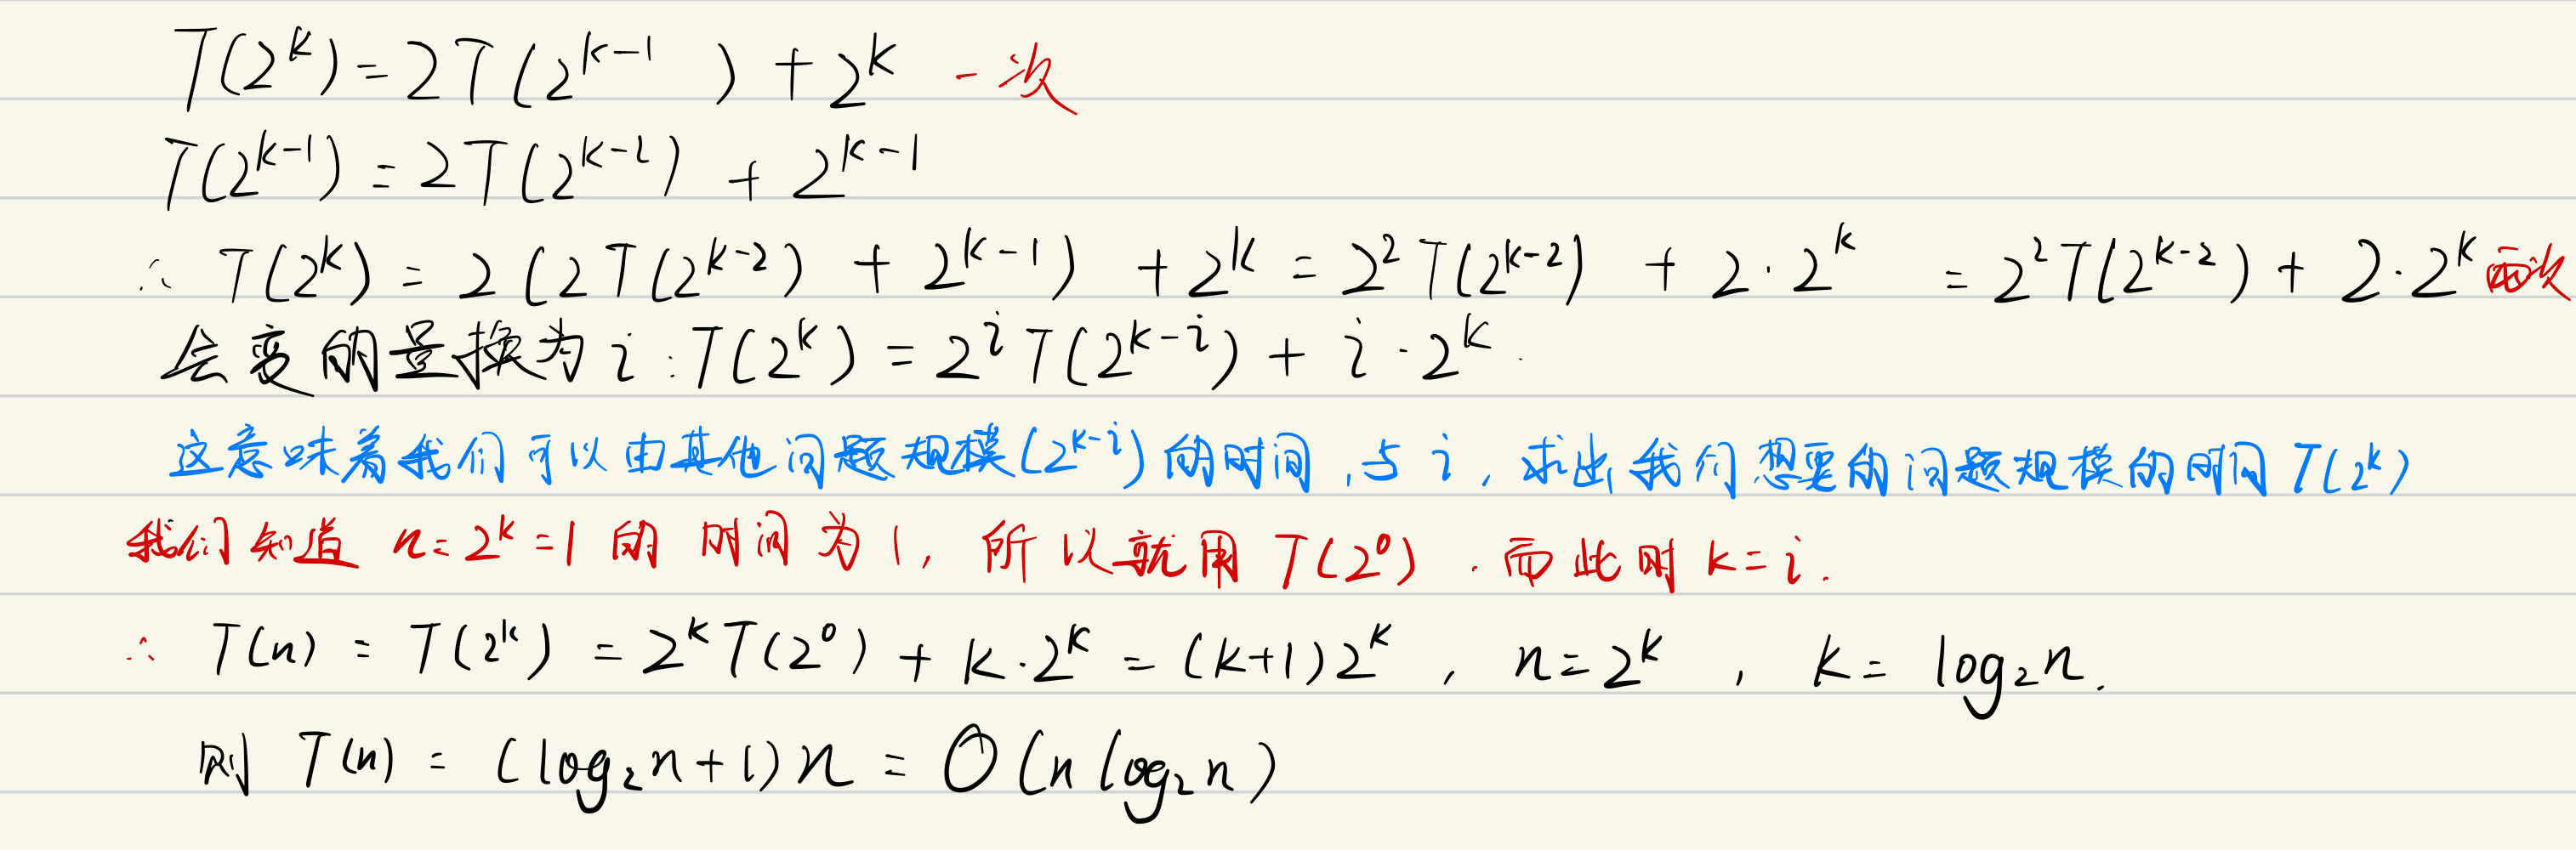 T(2^k) = 2T(2^{k-1}) + 2^k 一次
T(2^{k-1}) = 2T(2^{k-2}) + 2^{k-1}
∴ T(2^k) = 2(2T(2^{k-2}) + 2^{k-1}) + 2^k = 2^2 T(2^{k-2}) + 2·2^k = 2^2 T(2^{k-2}) + 2·2^k 两次
会变的量换为 i : T(2^k) = 2^i T(2^{k-i}) + i·2^k.
这意味着我们可以由其他问题规模(2^{k-i})的时间,与 i, 求出我们想要的问题规模的时间 T(2^k)
我们知道 n=2^k=1 的时间为 1, 所以就用 T(2^0). 而此时 k=i.
∴ T(n) = T(2^k) = 2^k T(2^0) + k·2^k = (k+1)2^k, n=2^k, k= log₂n.
则 T(n) = (log₂n+1)n = O(n log₂n)